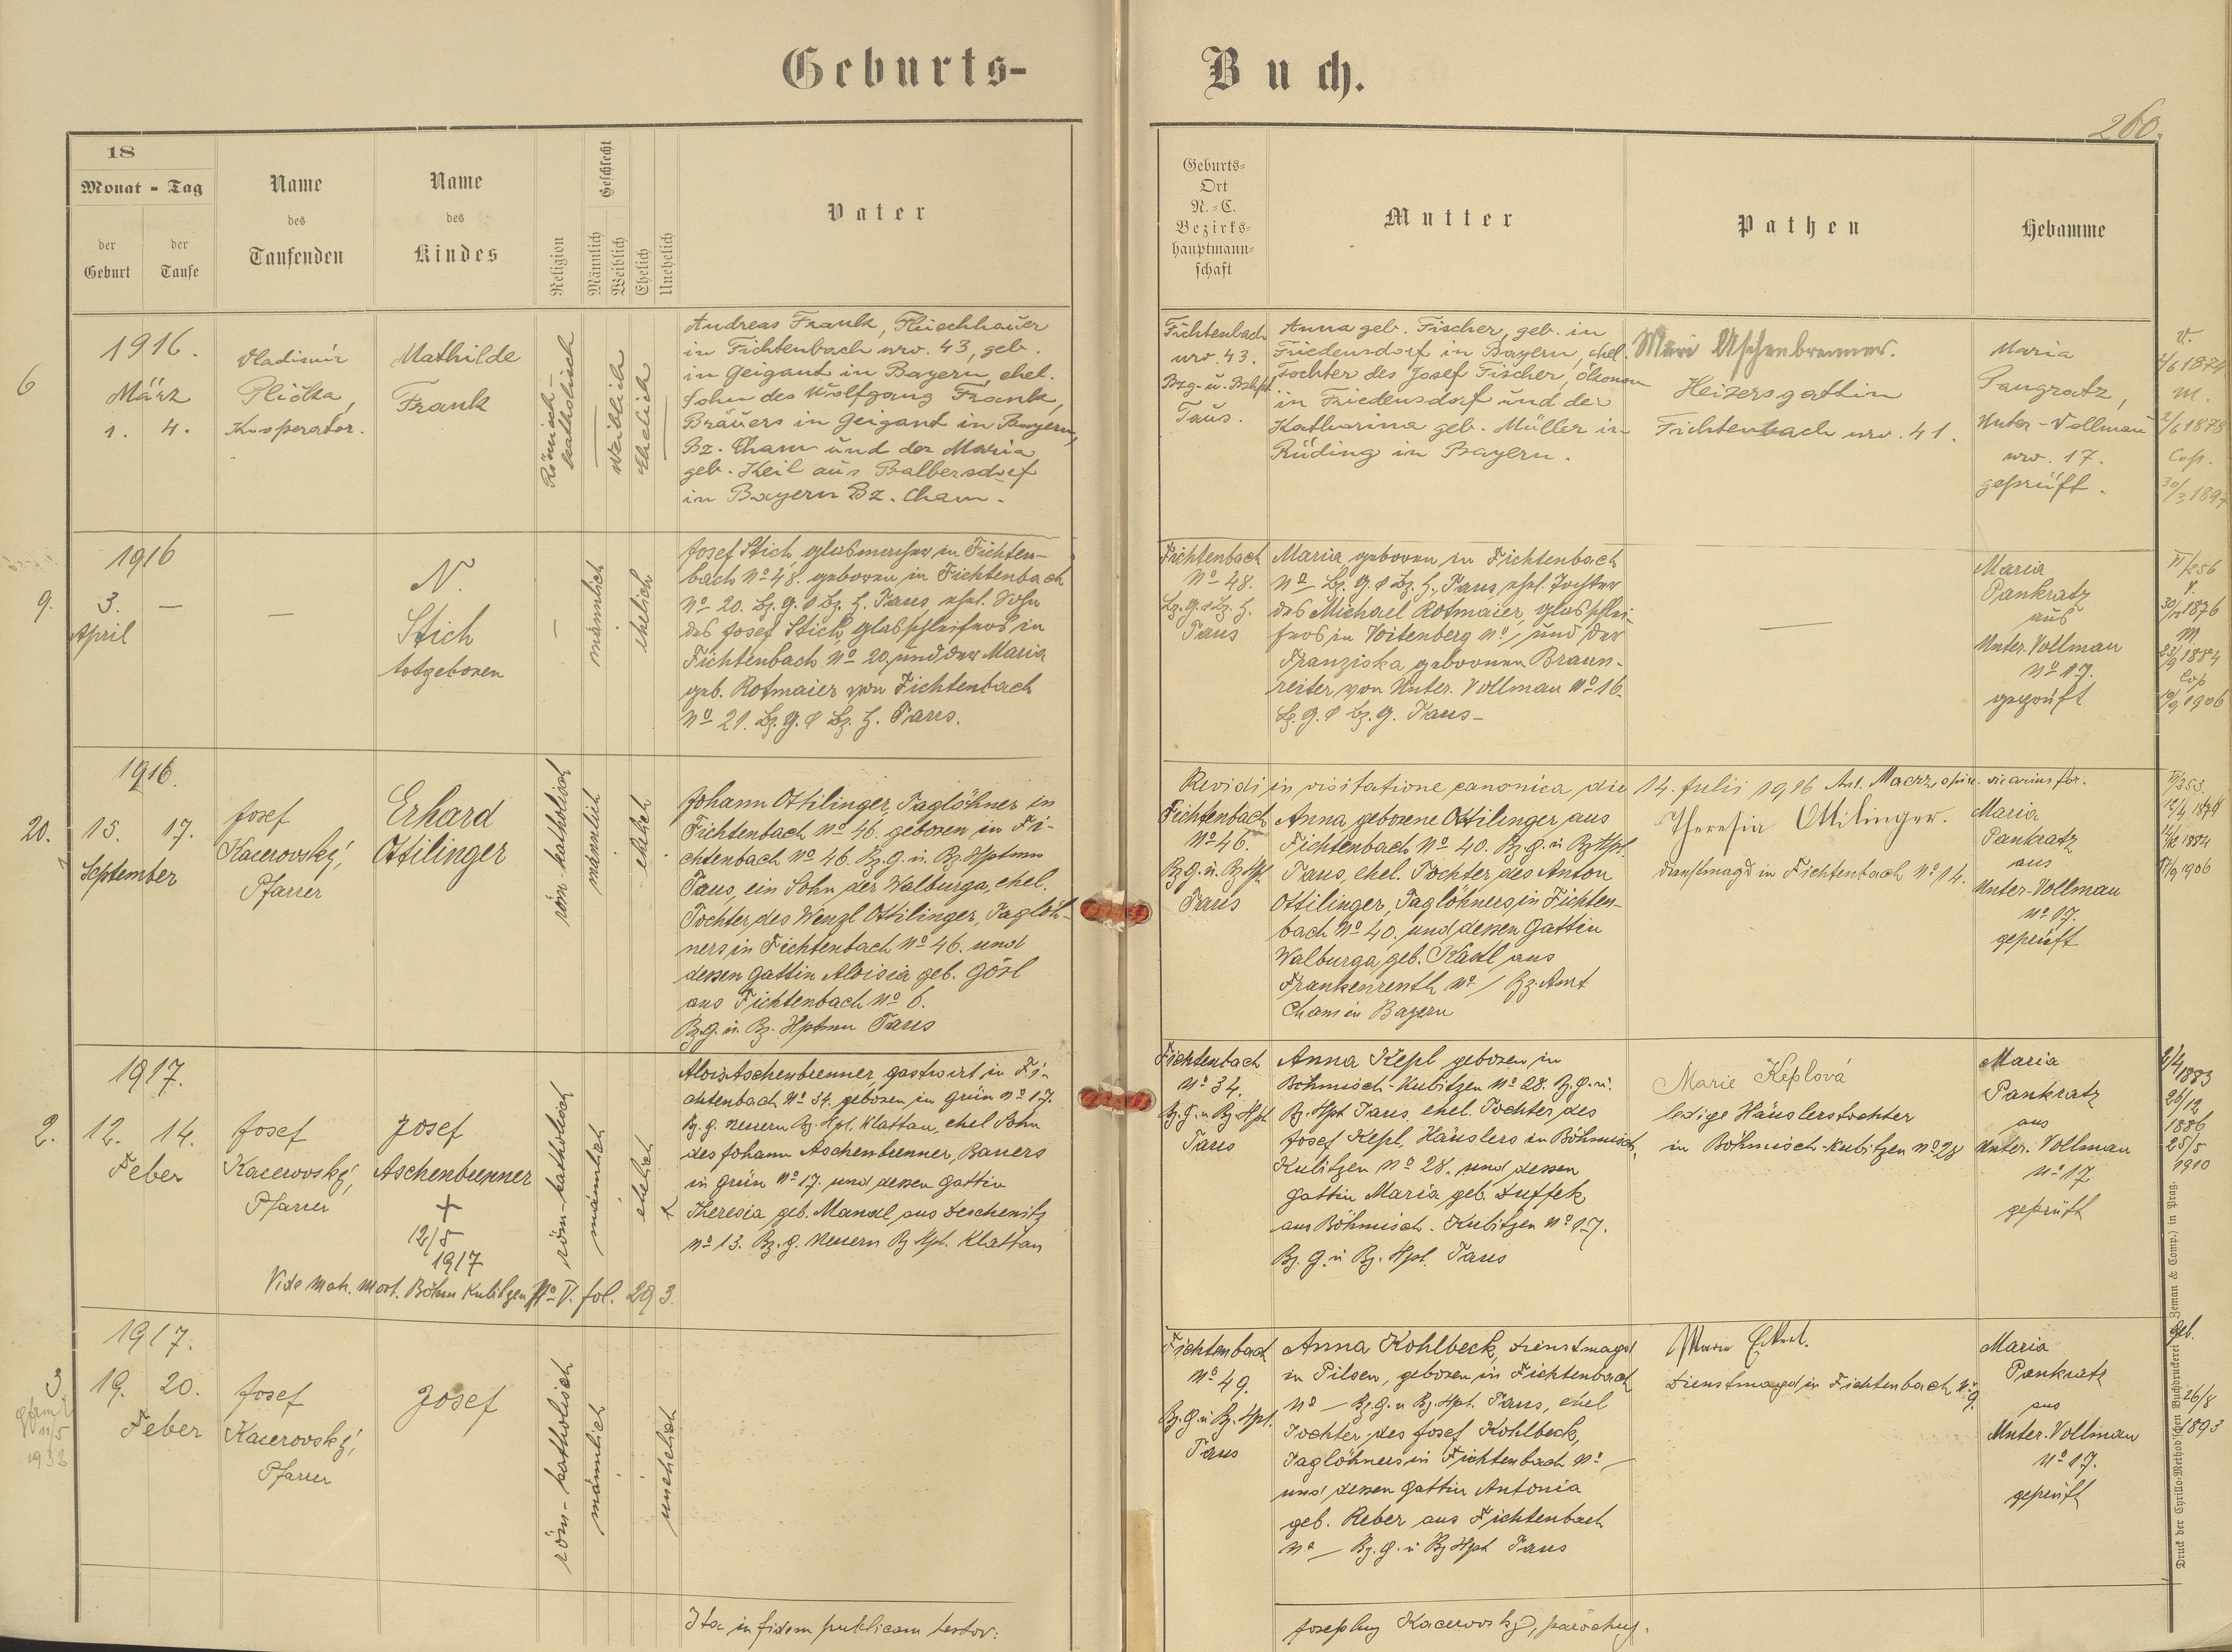 Geburts-
Buch.
260.
18
Monat - Tag
der Geburt
der Taufe
Name
des
Taufenden
Name
des
Kindes
Religion
Geschlecht
Männlich
Weiblich
Ehelich
Unehelich
Vater
Geburts-
Ort
N.-C.
Bezirks-
hauptmann-
schaft
Mutter
Pathen
Hebamme
6
1916.
März
1. 4.
Vladimír
Plička,
Kooperator.
Mathilde
Frank
Römisch-
katholisch
weiblich
Ehelich
Andreas Frank, Fleischhauer
in Fichtenbach nro. 43, geb.
in Geigant in Bayern, ehel.
Sohn des Wolfgang Frank,
Bräuers in Geigant in Bayern,
Bz. Cham und der Maria
geb. Keil aus Balbersdorf
in Bayern Bz. Cham.
Fichtenbach
nro. 43.
Bzg- u. Bzhpt
Taus.
Anna geb. Fischer, geb. in
Friedensdorf in Bayern, ehel.
Tochter des Josef Fischer, Ökonom
in Friedensdorf und der
Katharina geb. Müller in
Rüding in Bayern.
Mari Aschenbrenner.
Heizersgattin
Fichtenbach nro. 41.
Maria
Pangratz,
Unter-Vollmau
nro. 17.
geprüft.
V.
4/6 1874
M.
2/6 1878
Cop.
30/3 1897
9.
1916
3. —
April
—
N.
Stich
totgeboren
—
männlich
ehelich
Josef Stich, Glasmacher in Fichten-
bach No 48. geboren in Fichtenbach
No 20. Bz. G. & Bz. H. Taus, ehel. Sohn
des Josef Stich, Glasschleifers in
Fichtenbach No 20, und der Maria
geb. Rotmaier von Fichtenbach
No 21. Bz. G. & Bz. H. Taus.
Fichtenbach
No 48.
Bz. G. & Bz. H.
Taus
Maria, geboren in Fichtenbach
No — Bz. G. & Bz. H., Taus, ehel. Tochter
des Michael Rotmaier, Glasschlei-
fers in Voitenberg No / und der
Franziska geborenen Braun-
reiter von Unter-Vollmau No 16.
Bz. G. & Bz. G. Taus-
—
Maria
Pankratz
aus
Unter-Vollmau
No 17.
geprüft
V.
1876
M
23/9 1884
Cop
1906
20.
1916.
15. 17.
September
Josef
Kacerovský,
Pfarrer
Erhard
Ottilinger
röm-katholisch
männlich
ehelich
Johann Ottilinger, Taglöhner in
Fichtenbach No 46. geboren in Fi-
chtenbach No 46. Bz. G. u. Bz. Hptmn
Taus, ein Sohn der Walburga, ehel.
Tochter des Wenzl Ottilinger, Taglöh-
ners in Fichtenbach No 46. und
dessen Gattin Aloisia geb. Gösl
aus Fichtenbach No 6.
Bz. G. u. Bz. Hptmn Taus
Revidi in visitatione canonica die 14. Julii 1916 Ant. vicarius for.
Fichtenbach
No 46.
Bz. G. u. Bz. Hpt.
Taus
Anna geborene Ottilinger aus
Fichtenbach No 40. Bz. G. u. Bz Hpt.
Taus, ehel. Tochter des Anton
Ottilinger, Taglöhners in Fichten-
bach No 40. und dessen Gattin
Walburga geb. Kastl aus
Frankenreuth No / Bz. Amt
Cham in Bayern
Theresia Ottilinger.
Dienstmagd in Fichtenbach No 14.
Maria
Pankratz
aus
Unter-Vollmau
No 17.
geprüft
1874
1884
1906
2.
1917.
12. 14.
Feber
Josef
Kacerovský,
Pfarrer
Josef
Aschenbrenner
+
12/5
1917
Vide Matr. Mort. Böhm Kubitzen No V. fol. 293.
röm-katholisch
männlich
ehelich
Alois Aschenbrenner, Gastwirt in Fi-
chtenbach No 34. geboren in Grün No 17.
Bz. G. Neuern Bz. Hpt. Klattau, ehel Sohn
des Johann Aschenbrenner, Bauers
in Grün No 17. und dessen Gattin
Theresia geb. Mandl aus Deschenitz
No 13. Bz. G. Neuern Bz Hpt. Klattau
Fichtenbach
No 34.
Bz. G. u Bz. Hpt
Taus
Anna Kepl geboren in
Böhmisch-Kubitzen No 28. Bz. G. u.
Bz. Hpt Taus ehel. Tochter des
Josef Kepl, Häuslers in Böhmisch.
Kubitzen No 28. und dessen
Gattin Maria geb. Duffek
aus Böhmisch-Kubitzen No 17.
Bz. G. u Bz. Hpt. Taus
Marie Keplová
ledige Häuslerstochter
in Böhmisch-Kubitzen No 28
Maria
Pankratz
aus
Unter-Vollmau
No 17
geprüft
2/4
1883
26/12
1886
25/5
1910
3
11/5
1932
1917.
19. 20.
Feber
Josef
Kacerovský,
Pfarrer
Josef
röm-katholisch
männlich
unehelich
Fichtenbach
No 49.
Bz. G. u Bz. Hpt.
Taus
Anna Kohlbeck, Dienstmagd
in Pilsen, geboren in Fichtenbach
No — Bz. G. u Bz. Hpt. Taus, ehel
Tochter des Josef Kohlbeck,
Taglöhners in Fichtenbach No —
und dessen Gattin Antonia
geb. Reber aus Fichtenbach
No — Bz. G. u Bz Hpt Taus
Maria
Dienstmagd in Fichtenbach No 9.
Maria
Pankratz
aus
Unter-Vollmau
No 17.
geprüft
geb.
26/8
1893
Ita in fidem publicam testor:
Josephus Kacerovský, parochus.
Druck der Cyrillo-Method'schen Buchdruckerei (Zeman & Comp.) in Prag.